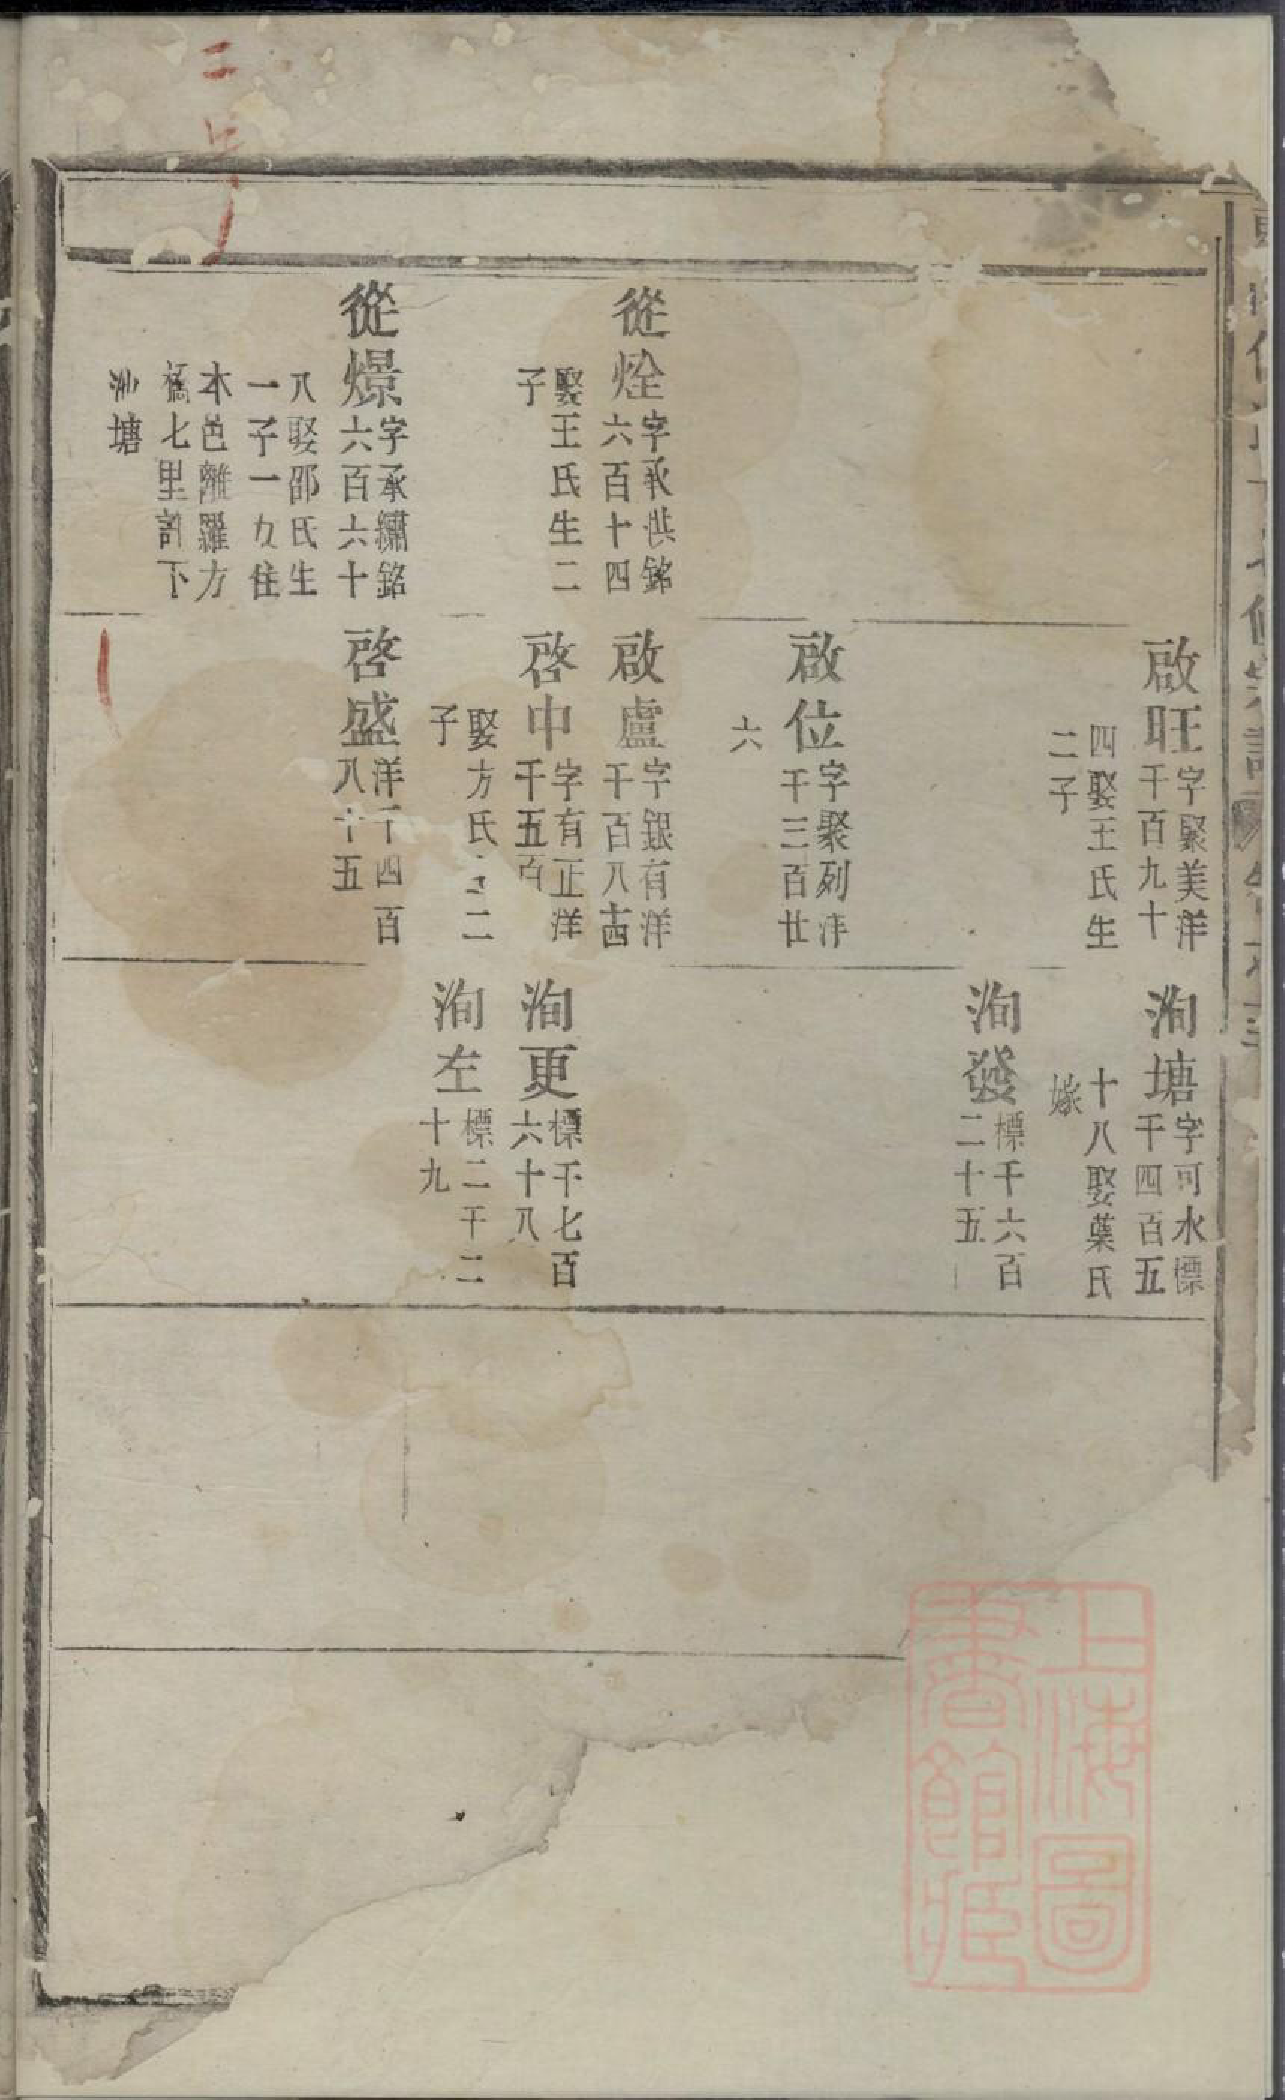 啟旺
字聚美洋
千百九十
四娶王氏生
二子
洵塘
字可水標
千四百五
十八娶葉氏
嫁
洵發
標千六百
二十五
啟位
字聚列洋
千三百廿
六
從烇
字承洪銘
六百十四
娶王氏生二
子
啟盧
字銀有洋
千百八十四
啓中
字有正洋
千五百
娶方氏 二
子
洵更
標千七百
六十八
洵左
標二千二
十九
從燝
字承繡銘
六百六十
八娶邵氏生
一子一女住
本邑離羅方
橋七里許下
塘
啓盛
洋千四百
八十五
上海圖
書館藏